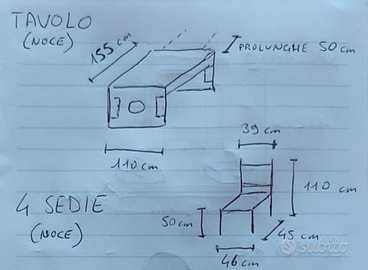 TAVOLO
(NOCE)
155 cm
PROLUNGHE 50 cm
110 cm
39 cm
4 SEDIE
(NOCE)
50 cm
110 cm
45 cm
46 cm
subito